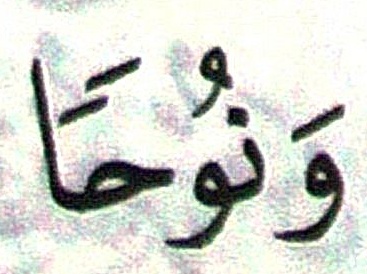 وَنُوحًا